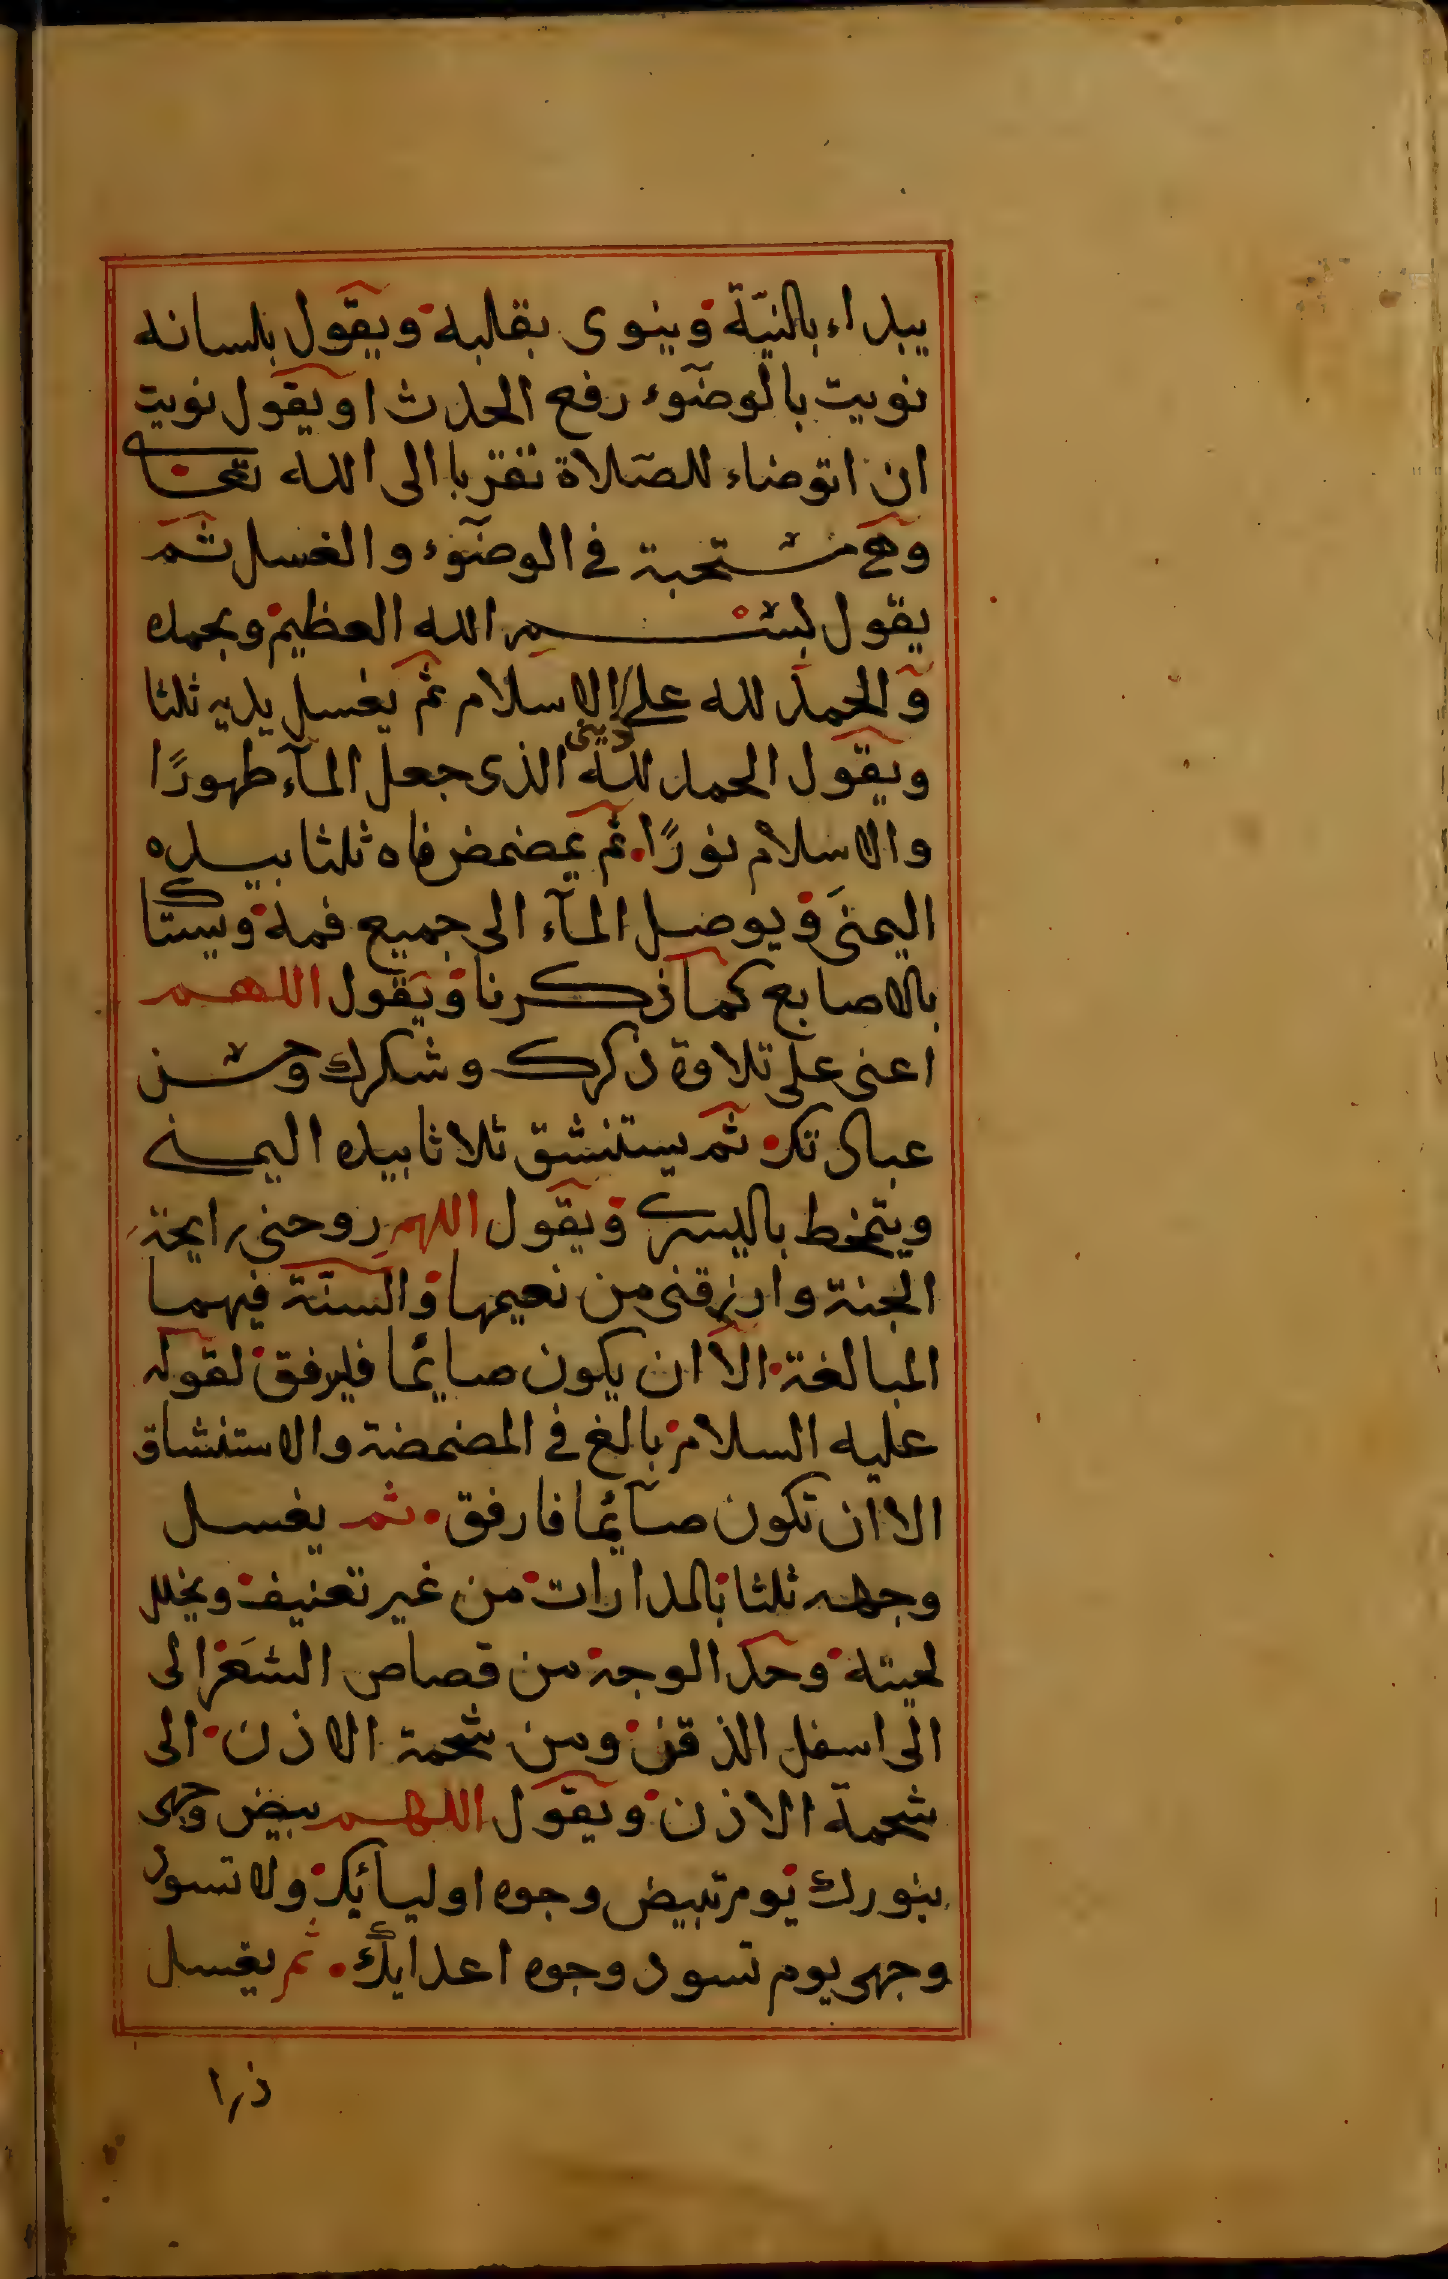 يبداء بالنيّة وينوى بقلبه ويقول بلسانه
نويت بالوضوء رفع الحدث او يقول نويت
ان اتوضاء للصّلاة تقربا الى الله تعالى
وهى مستحبة فى الوضوء والغسل ثم
يقول بسم الله العظيم وبحمده
والحمد لله على الاسلام ثم يغسل يديه ثلثا
دينى
ويقول الحمد لله الذى جعل المآء طهورًا
والاسلام نورًا ثم يمضمض فاه ثلثا بيده
اليمنى ويوصل المآء الى جميع فمه ويستاك
بالاصابع كما ذكرنا ويقول اللهم
اعنى على تلاوة ذكرك وشكرك وحسن
عبادتك ثم يستنشق ثلاثا بيده اليمنى
ويتمخط باليسرى ويقول اللهم روحنى رايحة
الجنة وارزقنى من نعيمها والسنّة فيهما
المبالغة الا ان يكون صايمًا فليرفق لقوله
عليه السلام بالغ فى المضمضة والاستنشاق
الا ان تكون صآئمًا فارفق ثم يغسل
وجهه ثلثا بالمدارات من غير تعنيف ويخلل
لحيته وحد الوجه من قصاص الشعر الى
الى اسفل الذقن ومن شحمة الاذن الى
شحمة الاذن ويقول اللهم بيض وجهى
بنورك يوم تبيض وجوه اوليائك ولا تسود
وجهى يوم تسود وجوه اعدايك ثم يغسل
ذرا